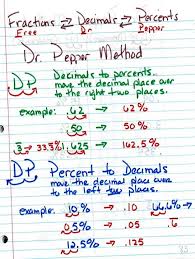 Fractions ⇄ Decimals ⇄ Percents
Free Dr Pepper
Dr. Pepper Method
D P Decimals to percents.
move the decimal place over
to the right two places.
example: .62 → 62%
1.625 → 162.5%
D P Percent to Decimals
move the decimal place over
to the left two places.
example: 10% → .10
05% → .05
12.5% → .125